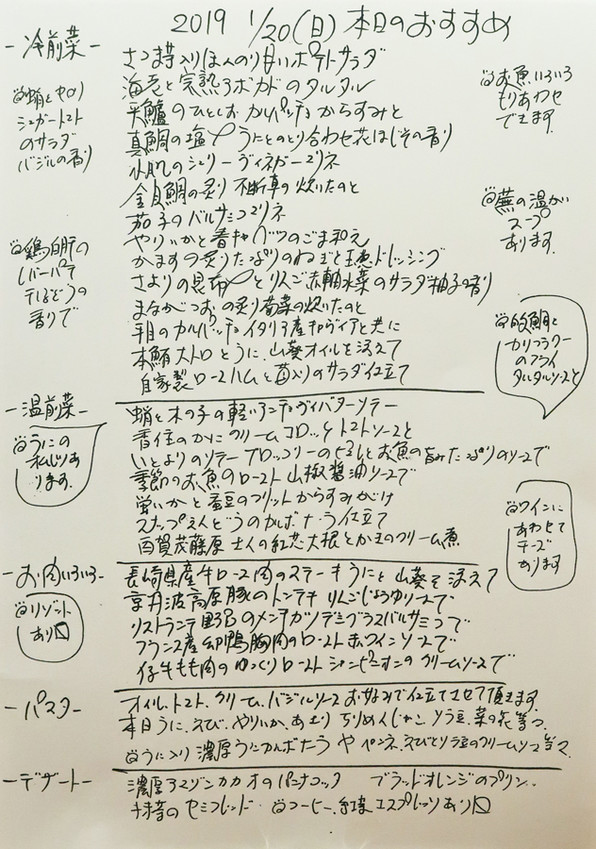 2019 1/20(日)本日のおすすめ
-冷前菜-
さつま芋入りほんのり甘いポテトサラダ
海老と完熟アボカドのタルタル
天鱸のひとしお カルパッチョ からすみと
真鯛の塩〆うにとのとり合わせ花ほじその香り
小肌のシェリーヴィネガーマリネ
金目鯛の炙り 不断草の炊いたのと
茄子のバルサミコマリネ
やりいかと春キャベツのごま和え
かますの炙りたっぷりのねぎと玉葱ドレッシング
さよりの昆布〆とりんご赤軸水菜のサラダ柚子の香り
まながつおの炙り 菊菜の炊いたのと
平目のカルパッチョ イタリア産キャヴィアと共に
本鮪大トロとうに、山葵オイルを添えて
自家製ロースハムと苺入りのサラダ仕立て
蛸とセロリ
シュガートマト
のサラダ
バジルの香り
鶏白肝の
レバーパテ
干しぶどうの
香りで
お魚いろいろ
もりあわせ
できます
蕪の温かい
スープ
あります
的鯛と
カリフラワー
のフライ
タルタルソースと
-温前菜-
蛸と木の子の軽いアンチョヴィバターソテー
香住のかにクリームコロッケ トマトソースと
いとよりのソテー ブロッコリーのピュレとお魚の旨みたっぷりのソースで
季節のお魚のロースト 山椒醤油ソースで
蛍いかと蚕豆のフリット からすみがけ
スナップえんどうのカルボナーラ仕立て
西賀茂藤原さんの紅芯大根とかきのクリーム煮
うにの
あります
ワインに
あわせて
チーズ
あります
-お肉いろいろ-
長崎県産牛ロース肉のステーキ うにと山葵を添えて
京丹波高原豚のトンテキ りんごしょうゆソースで
リストランテ野呂のメンチカツ デミグラスバルサミコで
フランス産 鴨胸肉のロースト 赤ワインソースで
仔牛もも肉のゆっくりロースト シャンピニオンのクリームソースで
リゾット
あり〼
-パスタ-
オイル、トマト、クリーム、バジルソース お好みで仕立てさせて頂きます
本日うに、えび、やりいか、あさり ちりめんじゃこ ソラ豆、菜の花等で
うに入り濃厚うにカルボナーラ や ペンネ、えびとソラ豆のクリームソース等々
-デザート-
濃厚アマゾンカカオのパンナコッタ ブラッドオレンジのプリン
セミフレッド コーヒー、紅茶 エスプレッソあり〼